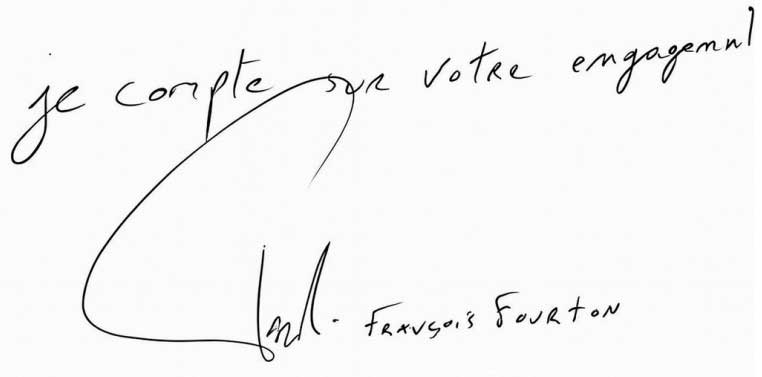 je compte sur votre engagement
François Fourton